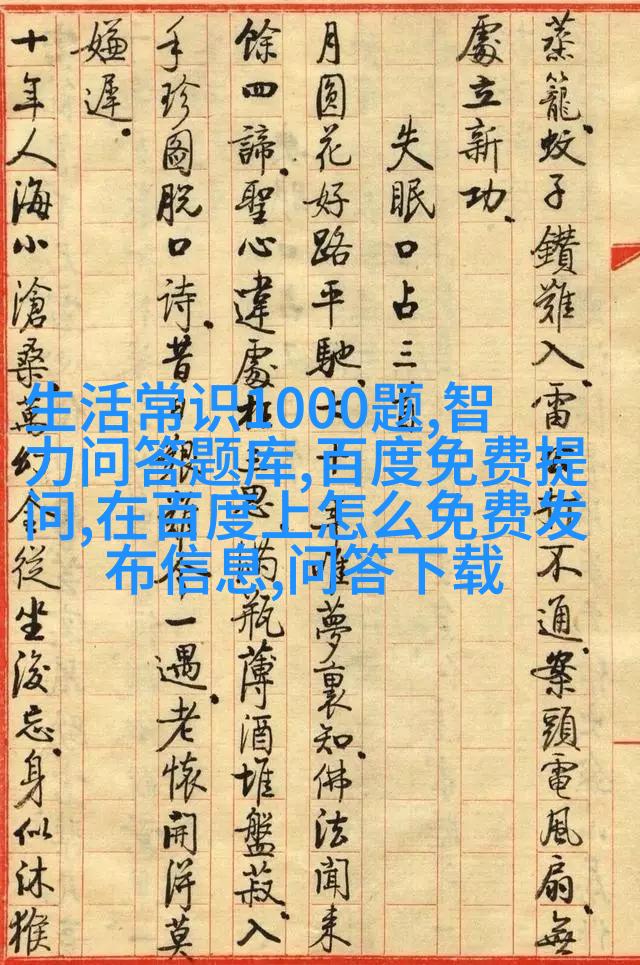 蒸籠、蚊子鑽難入、雷不通、案頭電風扇、無
處立新功、
失眠口占三
月圓花好路平馳、十年唯夢裏知、佛法聞來
餘四諦、聖心違處在思、瓶薄酒堆盤菽、入
手珍圖脫口詩、昔一遇、老懷開得莫
嫌遲。
十年人海小滄桑、萬幻全從坐後忘、身似沐猴
生活常识1000题,智
力问答题库,百度免费提
问,在百度上怎么免费发
布信息,问答下载